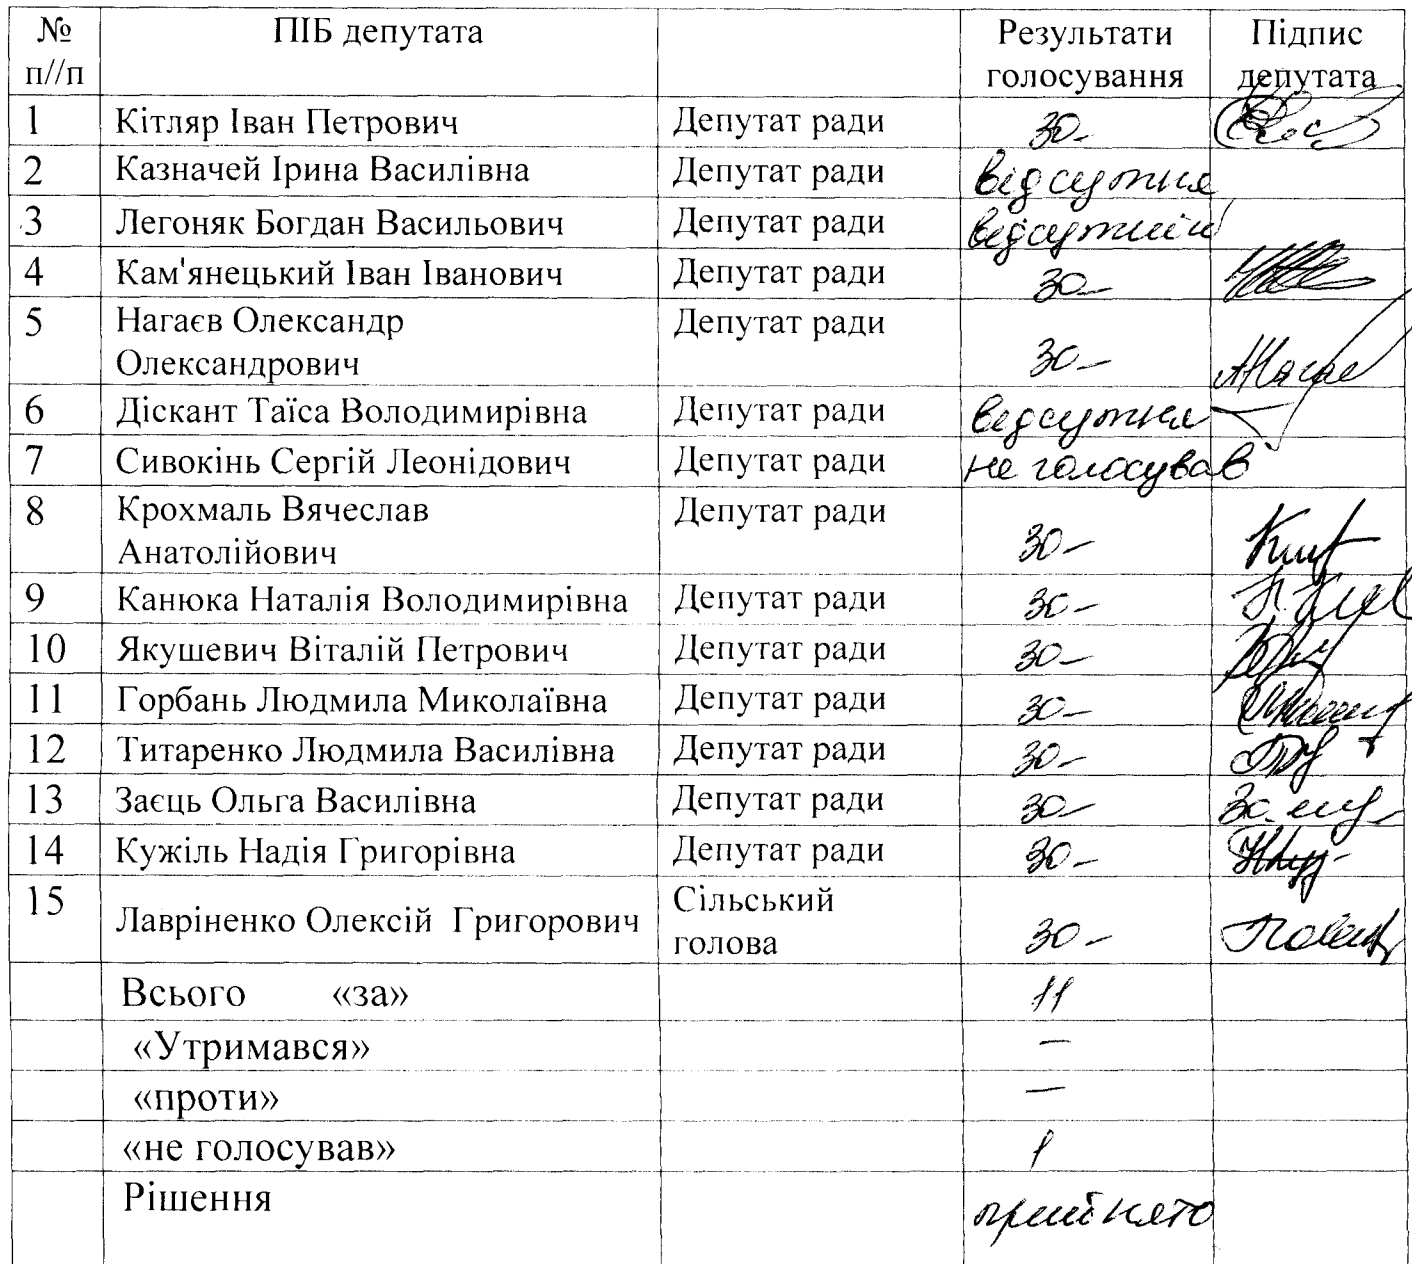 № п//п ПІБ депутата Результати голосування Підпис депутата
1 Кітляр Іван Петрович Депутат ради за
2 Казначей Ірина Василівна Депутат ради відсутня
3 Легоняк Богдан Васильович Депутат ради відсутній
4 Кам'янецький Іван Іванович Депутат ради за
5 Нагаєв Олександр Олександрович Депутат ради за
6 Діскант Таїса Володимирівна Депутат ради відсутня
7 Сивокінь Сергій Леонідович Депутат ради не голосував
8 Крохмаль Вячеслав Анатолійович Депутат ради за
9 Канюка Наталія Володимирівна Депутат ради за
10 Якушевич Віталій Петрович Депутат ради за
11 Горбань Людмила Миколаївна Депутат ради за
12 Титаренко Людмила Василівна Депутат ради за
13 Заєць Ольга Василівна Депутат ради за
14 Кужіль Надія Григорівна Депутат ради за
15 Лавріненко Олексій Григорович Сільський голова за
Всього «за» 11
«Утримався» —
«проти» —
«не голосував» 1
Рішення прийнято